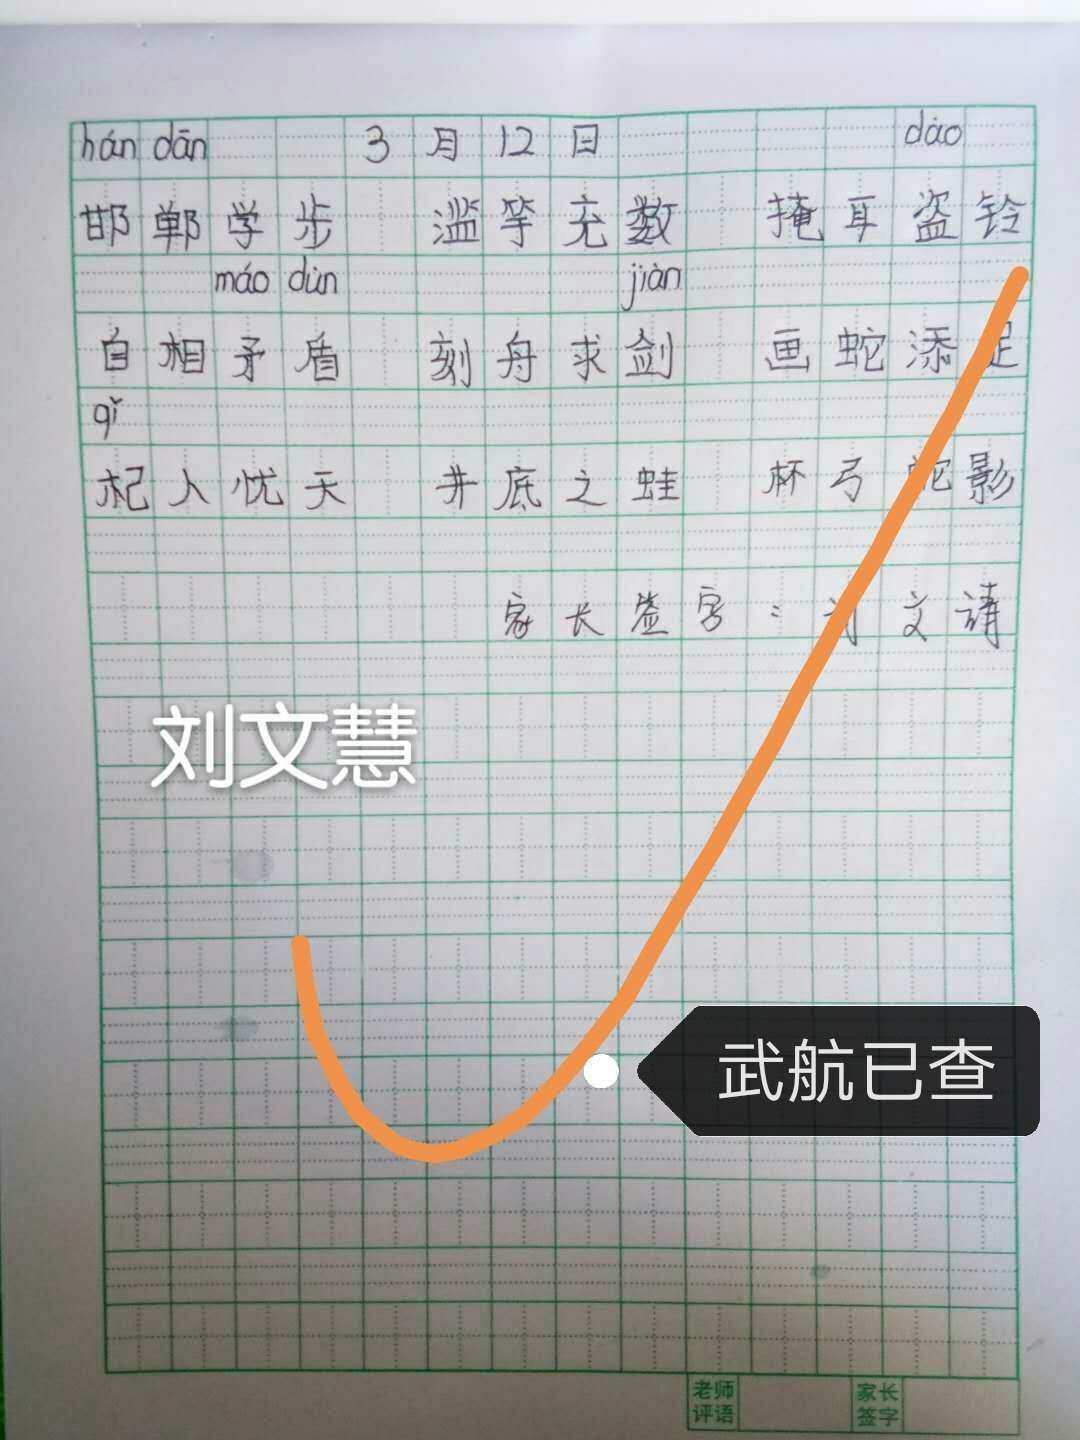 hán dān 3月12日 dào
邯郸学步 滥竽充数 掩耳盗铃
máo dùn jiàn
自相矛盾 刻舟求剑 画蛇添足
qǐ
杞人忧天 井底之蛙 杯弓蛇影
家长签字：刘文请
刘文慧
武航已查
老师评语 家长签字